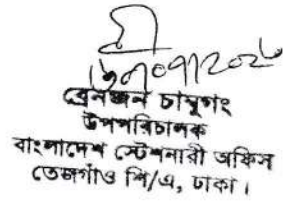 ১৬/০৭/২০২৬
ব্রেনজন চাম্বুগং
উপপরিচালক
বাংলাদেশ স্টেশনারী অফিস
তেজগাঁও শি/এ, ঢাকা।